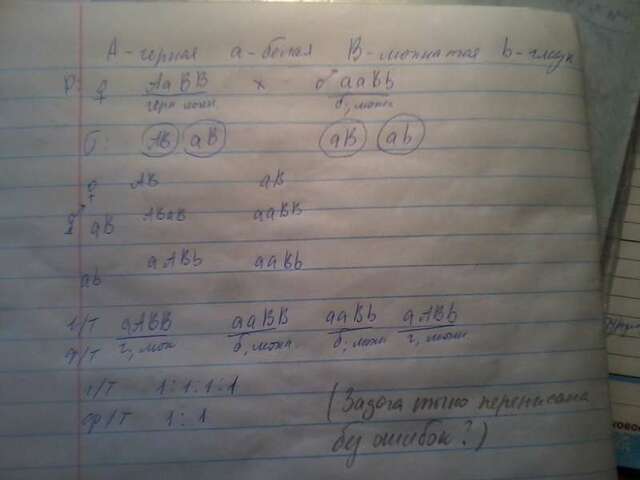 A - черная a - белая B - мохнатая b - гладк
P: ♀ AaBB x ♂ aaBb
черн мохн б, мохн
б: AB aB aB ab
♀ AB aB
♂ aB ABaB aaBB
ab aABb aaBb
г/т aABB aaBB aaBb aABb
ф/т ч, мох б, мохн б, мохн ч, мохн
г/т 1:1:1:1
ф/т 1:1
(Задача точно переписана
без ошибок?)